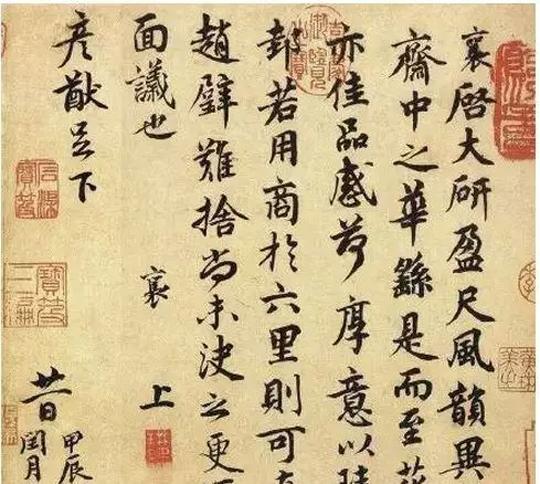 襄啓大研盈尺風韻異
齋中之華繇是而至
亦佳品感荷厚意以
邦若用商於六里則可
趙璧難捨尚未決之更
面議也
襄上
彥猷足下
廿一日
甲辰
閏月